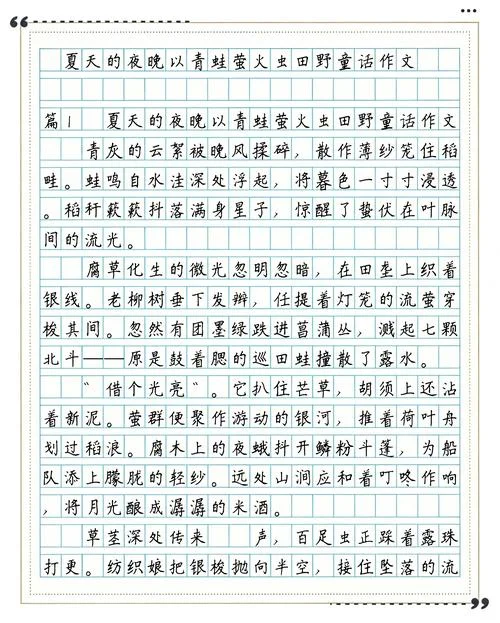 夏天的夜晚以青蛙萤火虫田野童话作文
篇1 夏天的夜晚以青蛙萤火虫田野童话作文
青灰的云絮被晚风揉碎，散作薄纱笼住稻
畦。蛙鸣自水洼深处浮起，将暮色一寸寸浸透
。稻秆簌簌抖落满身星子，惊醒了蛰伏在叶脉
间的流光。
腐草化生的微光忽明忽暗，在田垄上织着
银线。老柳树垂下发辫，任提着灯笼的流萤穿
梭其间。忽然有团墨绿跌进菖蒲丛，溅起七颗
北斗——原是鼓着腮的巡田蛙撞散了露水。
“借个光亮”。它扒住芒草，胡须上还沾
着新泥。萤群便聚作游动的银河，推着荷叶舟
划过稻浪。腐木上的夜蛾抖开鳞粉斗篷，为船
队添上朦胧的轻纱。远处山涧应和着叮咚作响
，将月光酿成潺潺的米酒。
草茎深处传来 声，百足虫正踩着露珠
打更。纺织娘把银梭抛向半空，接住坠落的流